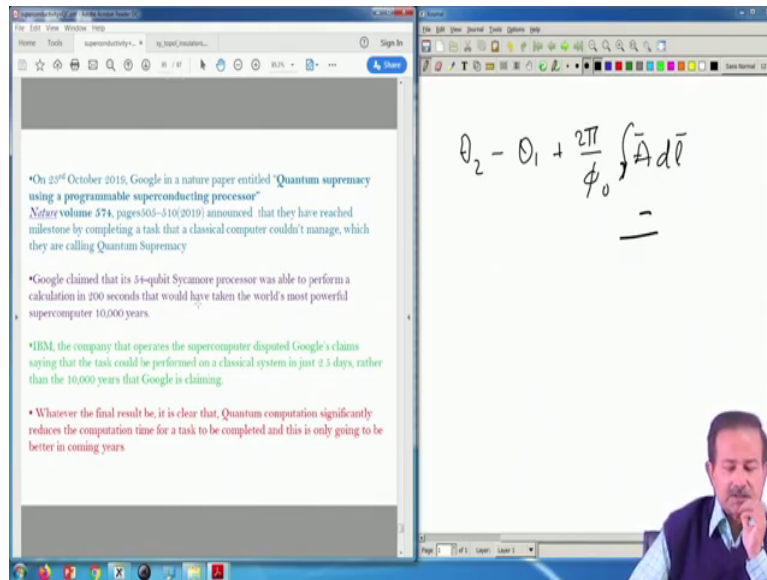 superconductivity+QC.pdf - Adobe Acrobat Reader DC
File Edit View Window Help
Home Tools superconductivity+... × sg_topol_insulators... Sign In
85 / 87 Share
•On 23rd October 2019, Google in a nature paper entitled "Quantum supremacy
using a programmable superconducting processor"
Nature volume 574, pages505–510(2019) announced that they have reached
milestone by completing a task that a classical computer couldn't manage, which
they are calling Quantum Supremacy
•Google claimed that its 54-qubit Sycamore processor was able to perform a
calculation in 200 seconds that would have taken the world's most powerful
supercomputer 10,000 years.
•IBM, the company that operates the supercomputer disputed Google's claims
saying that the task could be performed on a classical system in just 2.5 days, rather
than the 10,000 years that Google is claiming.
• Whatever the final result be, it is clear that, Quantum computation significantly
reduces the computation time for a task to be completed and this is only going to be
better in coming years
Journal
File Edit View Journal Tools Options Help
Sans Normal 12
θ₂ - θ₁ + 2π/ϕ₀ ∫ A̅ dl̅
Page 1 of 1 Layer: Layer 1